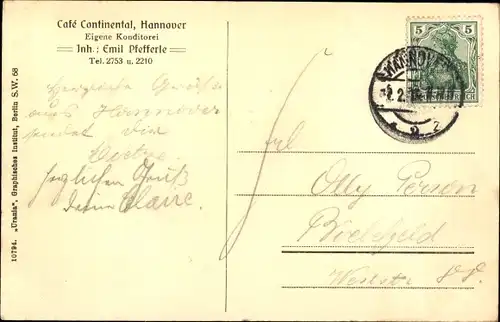 Café Continental, Hannover
Eigene Konditorei
Inh.: Emil Pfefferle
Tel. 2753 u. 2210
Herzliche Grüße
aus Hannover
sendet Dir
herzlichen Gruß
deine Claire.
10794. „Urania", Graphisches Institut, Berlin S.W. 68
5 5
HANNOVER
2
Olly Person
Bielefeld